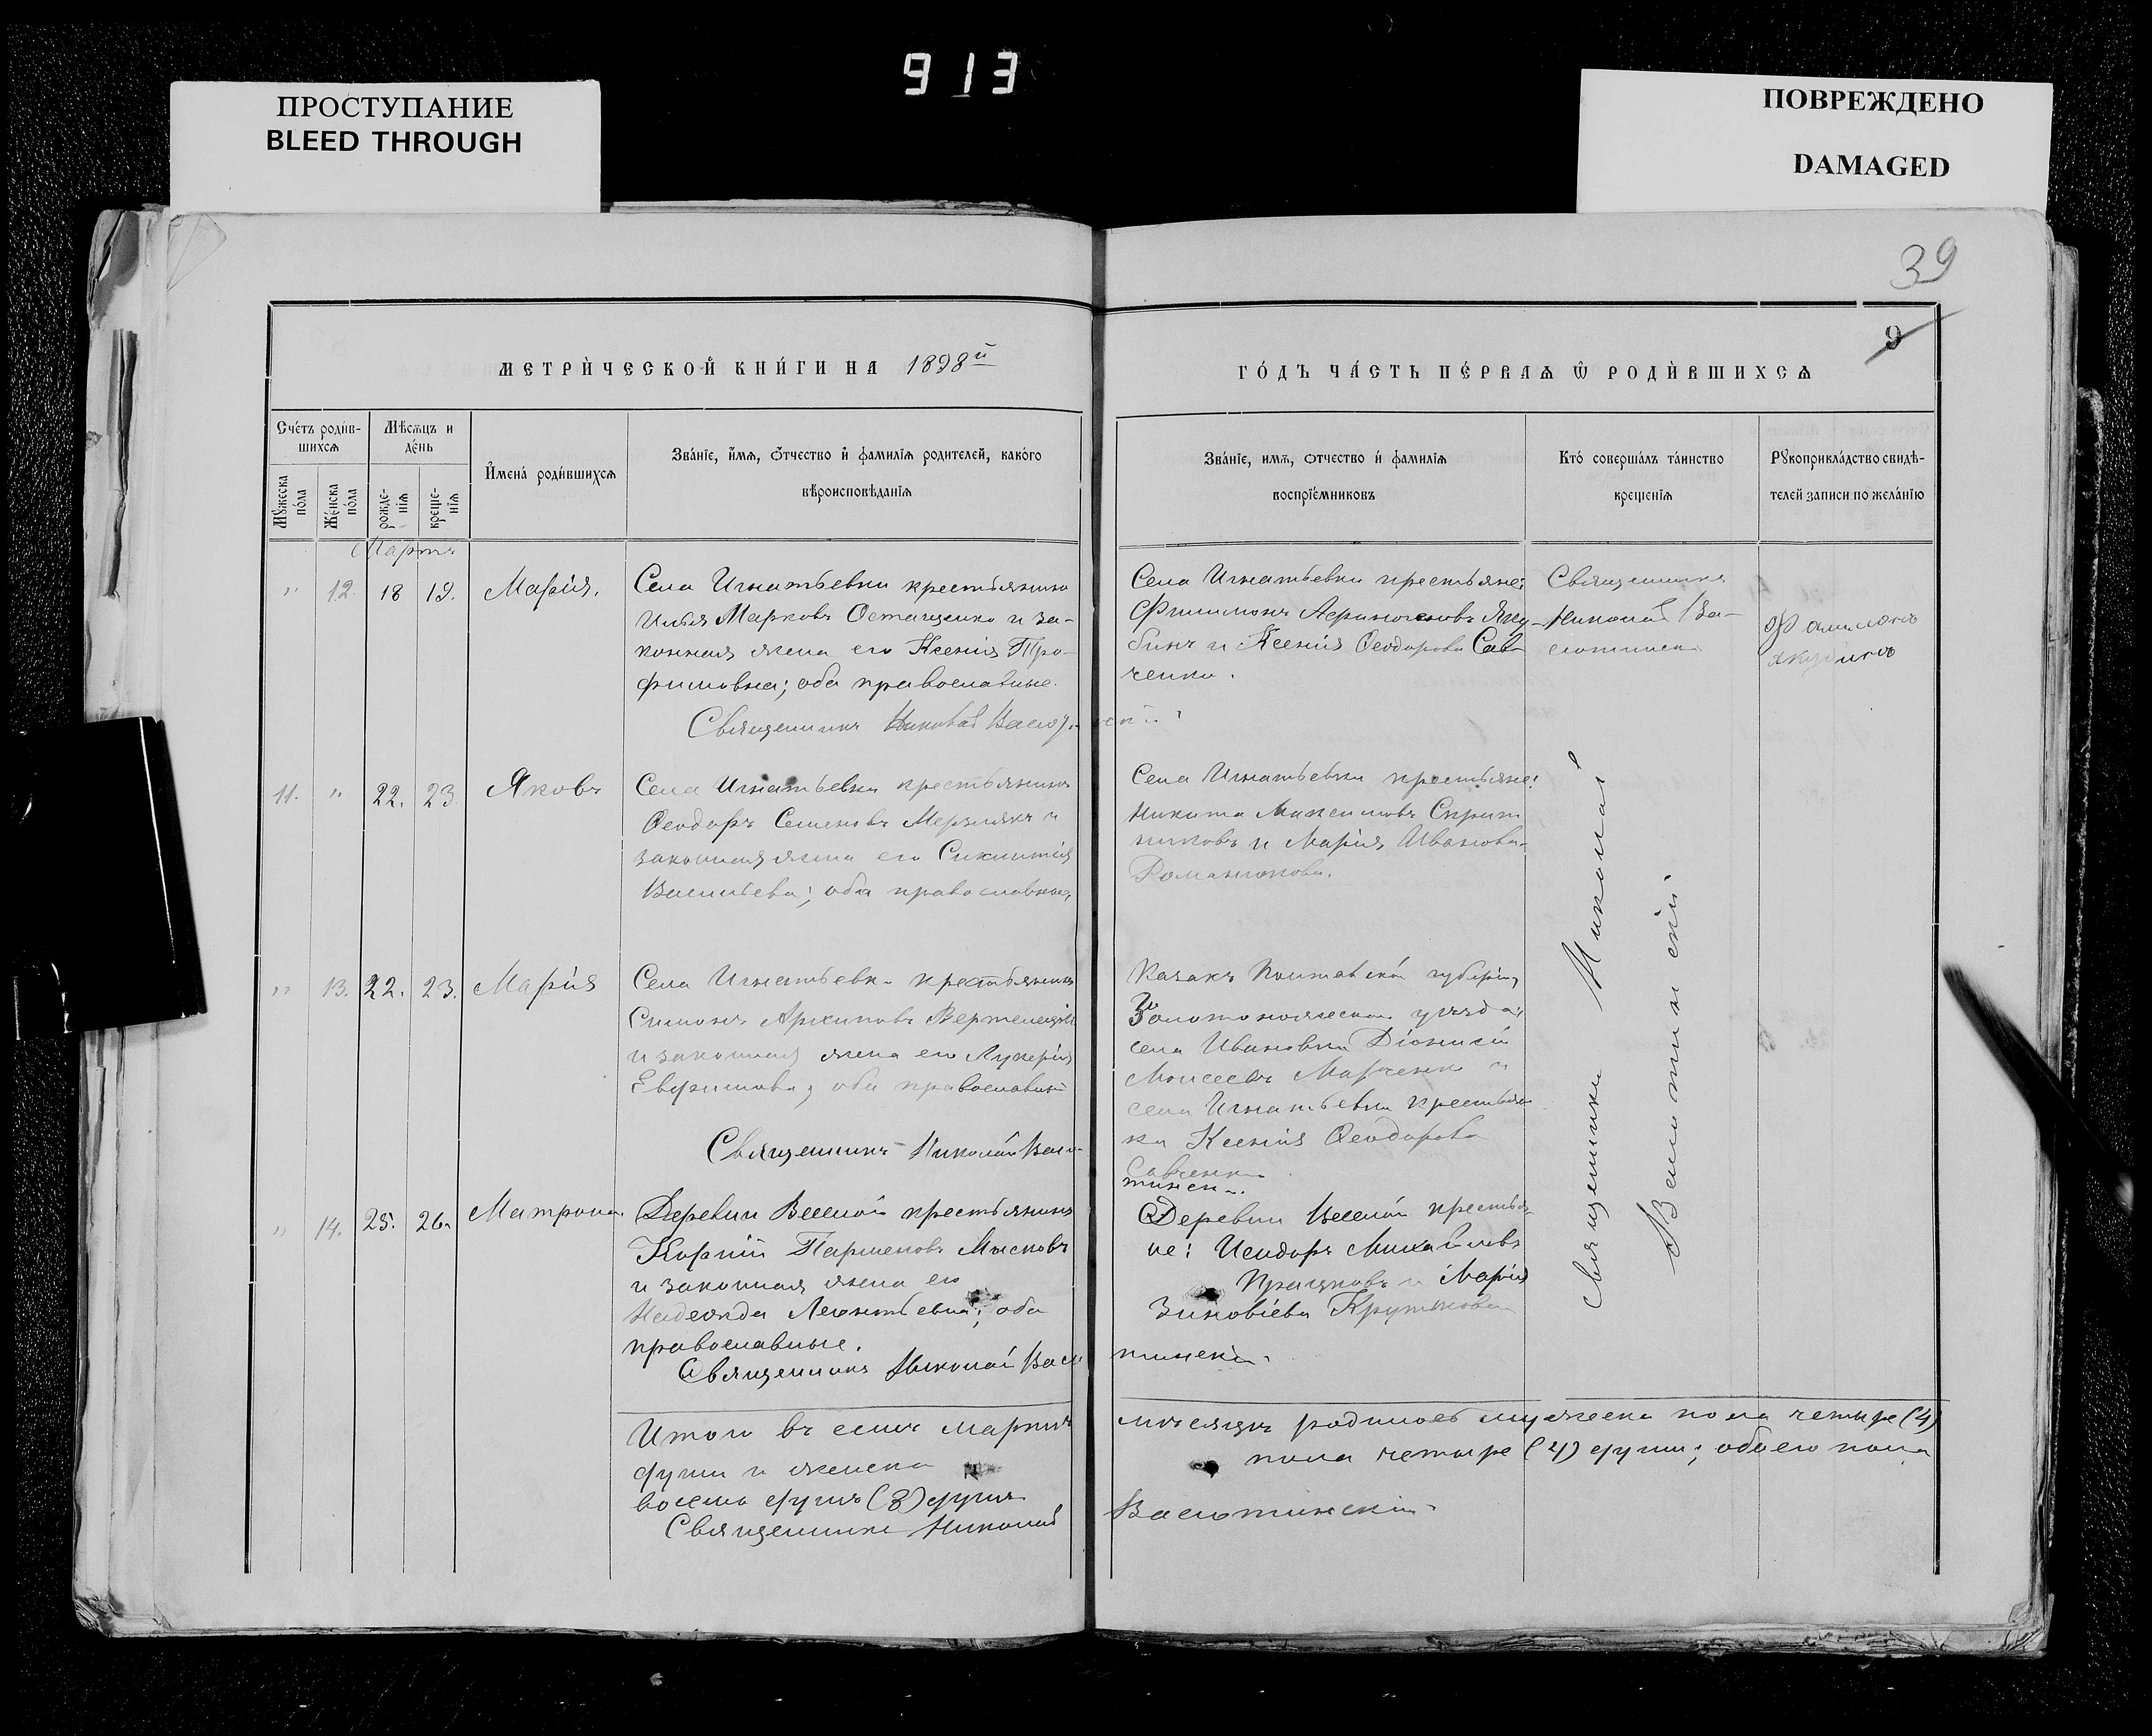 913
ПРОСТУПАНИЕ
BLEED THROUGH
ПОВРЕЖДЕНО
DAMAGED
39
9
МЕТРИ́ЧЕСКОЙ КНИ́ГИ НА 1898й
ГО́ДЪ ЧА́СТЬ ПЕ́РВАѦ Ѿ РОДИ́ВШИХСѦ
Сче́тъ роди́в-
шихсѧ
Мѣсѧцъ и
де́нь
Мꙋжеска по́ла
Же́нска по́ла
рожде-
нїѧ
креще-
нїѧ
И҆мена̀ роди́вшихсѧ
Зва́нїе, и҆́мѧ, ѻ҆́тчество и҆ фамилїѧ родителей, како́го
вѣроисповѣданїѧ
Зва́нїе, имѧ, ѻтчество и҆ фамилїѧ
воспрїе́мниковъ
Кто̀ соверша́лъ та́инство
крещенїѧ
Рꙋкоприкла́дство свидѣ-
телей записи по жела́нїю
Мартъ
" 12. 18 19. Марія.
Села Игнатьевки крестьянинъ
Илья Марковъ Остащенко и за-
конная жена его Ксенія Тро-
фимовна; оба православные.
Священникъ Николай Васютинскій
Села Игнатьевки крестьяне:
Филимонъ Яку-
бинъ и Ксенія Ѳеодорова Сав-
ченко.
Священникъ
Николай Ва-
сютинскій
Филимонъ
Якубинъ
11. " 22. 23. Яковъ
Села Игнатьевки крестьянинъ
Ѳеодоръ Семеновъ Мерзлякъ и
законная жена его
Васильева; оба православные,
Села Игнатьевки крестьяне:
Никита Максимовъ Скрип
никовъ и Марія Иванова
Романюкова.
" 13. 22. 23. Марія
Села Игнатьевки крестьянинъ
Симонъ Архиповъ
и законная жена его Лукерія
Евфимова; оба православные
Священникъ Николай Васю-
тинскій.
Казакъ Полтавской губерніи,
Золотоношскаго уѣзда,
села Ивановки Діонисій
Моисеевъ Марченко и
села Игнатьевки крестьян
ка Ксенія Ѳеодорова
Савченко
" 14. 25. 26. Матрона.
Деревни Веселой крестьянинъ
Парменовъ Мысковъ
и законная жена его
Надежда Леонтьевна; оба
православные.
Священникъ Николай Васю
тинскій.
Деревни Веселой крестья-
не: Исидоръ Михайловъ
и Марія
Зиновіева Крутькова
Священникъ Николай
Васютинскій
Итого въ семъ мартѣ мѣсяцѣ родилось мужеска пола четыре (4)
души и женска пола четыре (4) души; обоего пола
восемь душъ (8) душъ
Священникъ Николай Васютинскій.